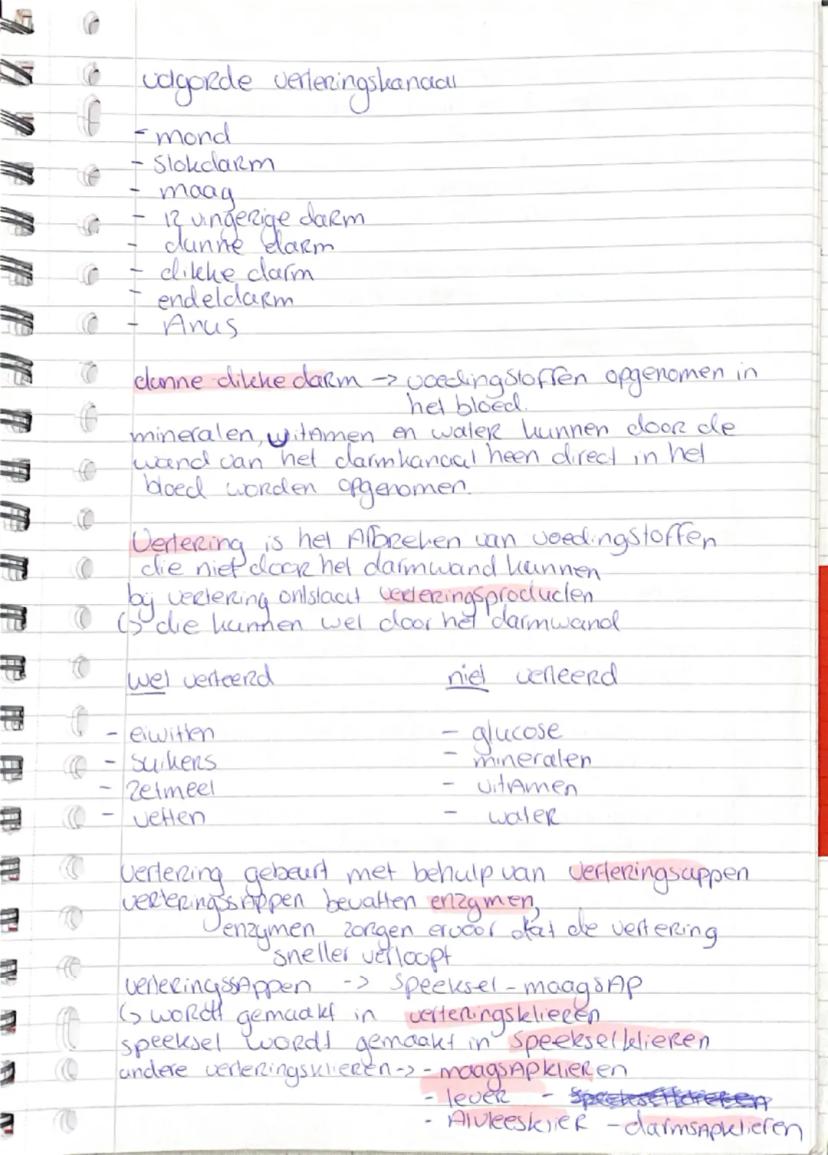 volgorde verteringskanaal
- mond
- slokdarm
- maag
- 12 vingerige darm
- dunne darm
- dikke darm
- endeldarm
- Anus
dunne-dikke darm -> voedingstoffen opgenomen in
het bloed.
mineralen, vitamen en water kunnen door de
wand van het darmkanaal heen direct in het
bloed worden opgenomen.
Vertering is het Afbreken van voedingstoffen
die niet door het darmwand kunnen
bij vertering ontstaat verteringsproducten
↳ die kunnen wel door het darmwand
wel verteerd niet verteerd
- eiwitten - glucose
- suikers - mineralen
- zetmeel - vitamen
- vetten - water
vertering gebeurt met behulp van verteringsappen
verteringssappen bevatten enzymen,
enzymen zorgen ervoor dat de vertering
sneller verloopt
verteringssappen -> speeksel - maagsap
↳ wordt gemaakt in verteringsklieren
speeksel wordt gemaakt in speekselklieren
andere verteringsklieren -> - maagsapklieren
- lever -
- Alvleesklier - darmsapklieren